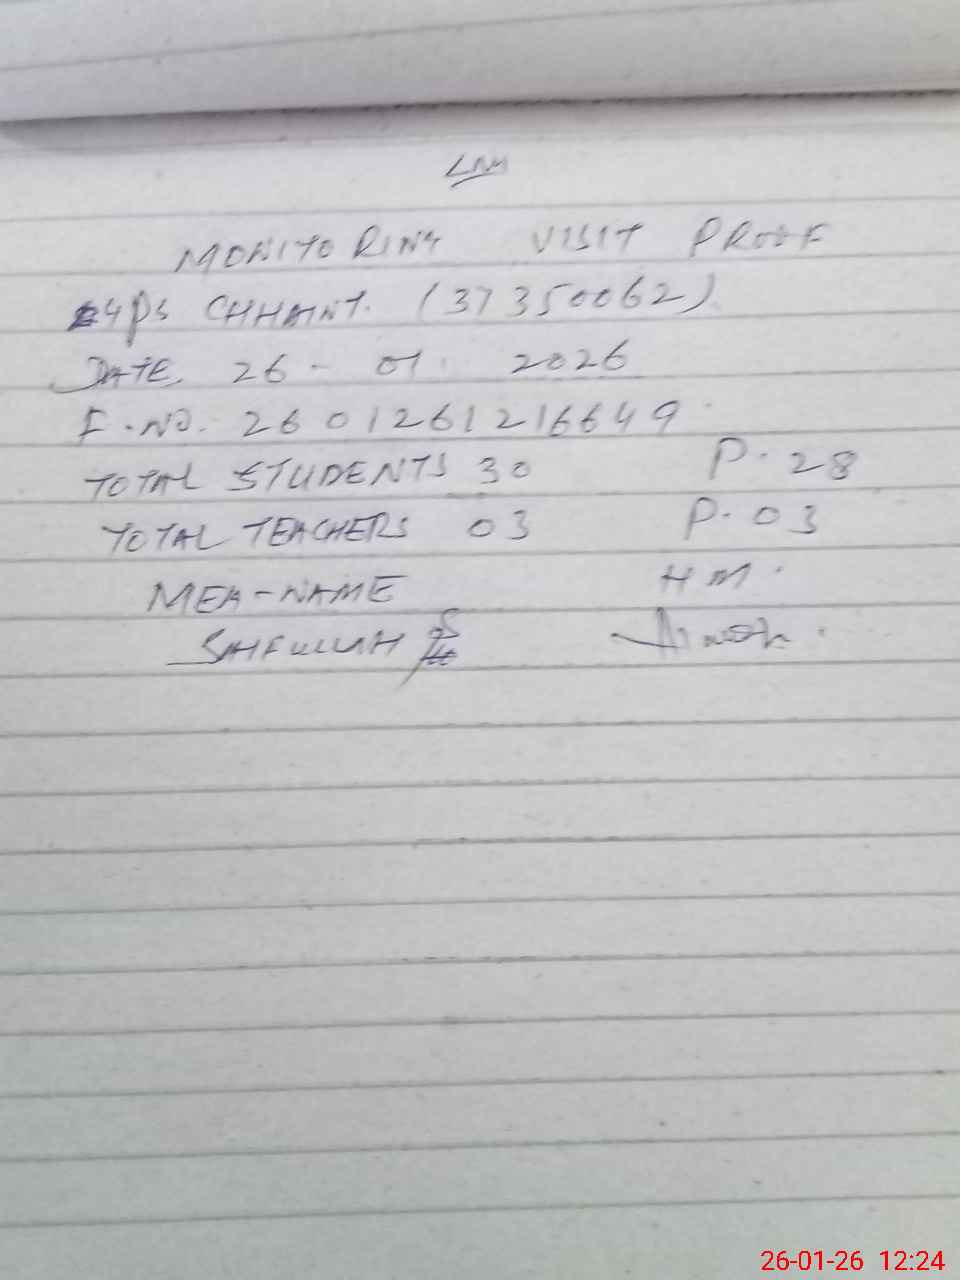 MONITORING VISIT PROOF
GPS CHHANT. (37350062).
DATE 26-01. 2026
F.NO. 2601261216649
TOTAL STUDENTS 30 P. 28
TOTAL TEACHERS 03 P. 03
MEA-NAME HM.
SAFULLAH
26-01-26 12:24